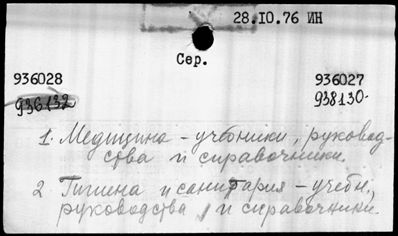 28.10.76 ИН
Сер.
936028 936027
936132 938130.
1. Медицина - учебники, руковод-
ства и справочники.
2. Гигиена и санитария - учебн.,
руководства и справочники.